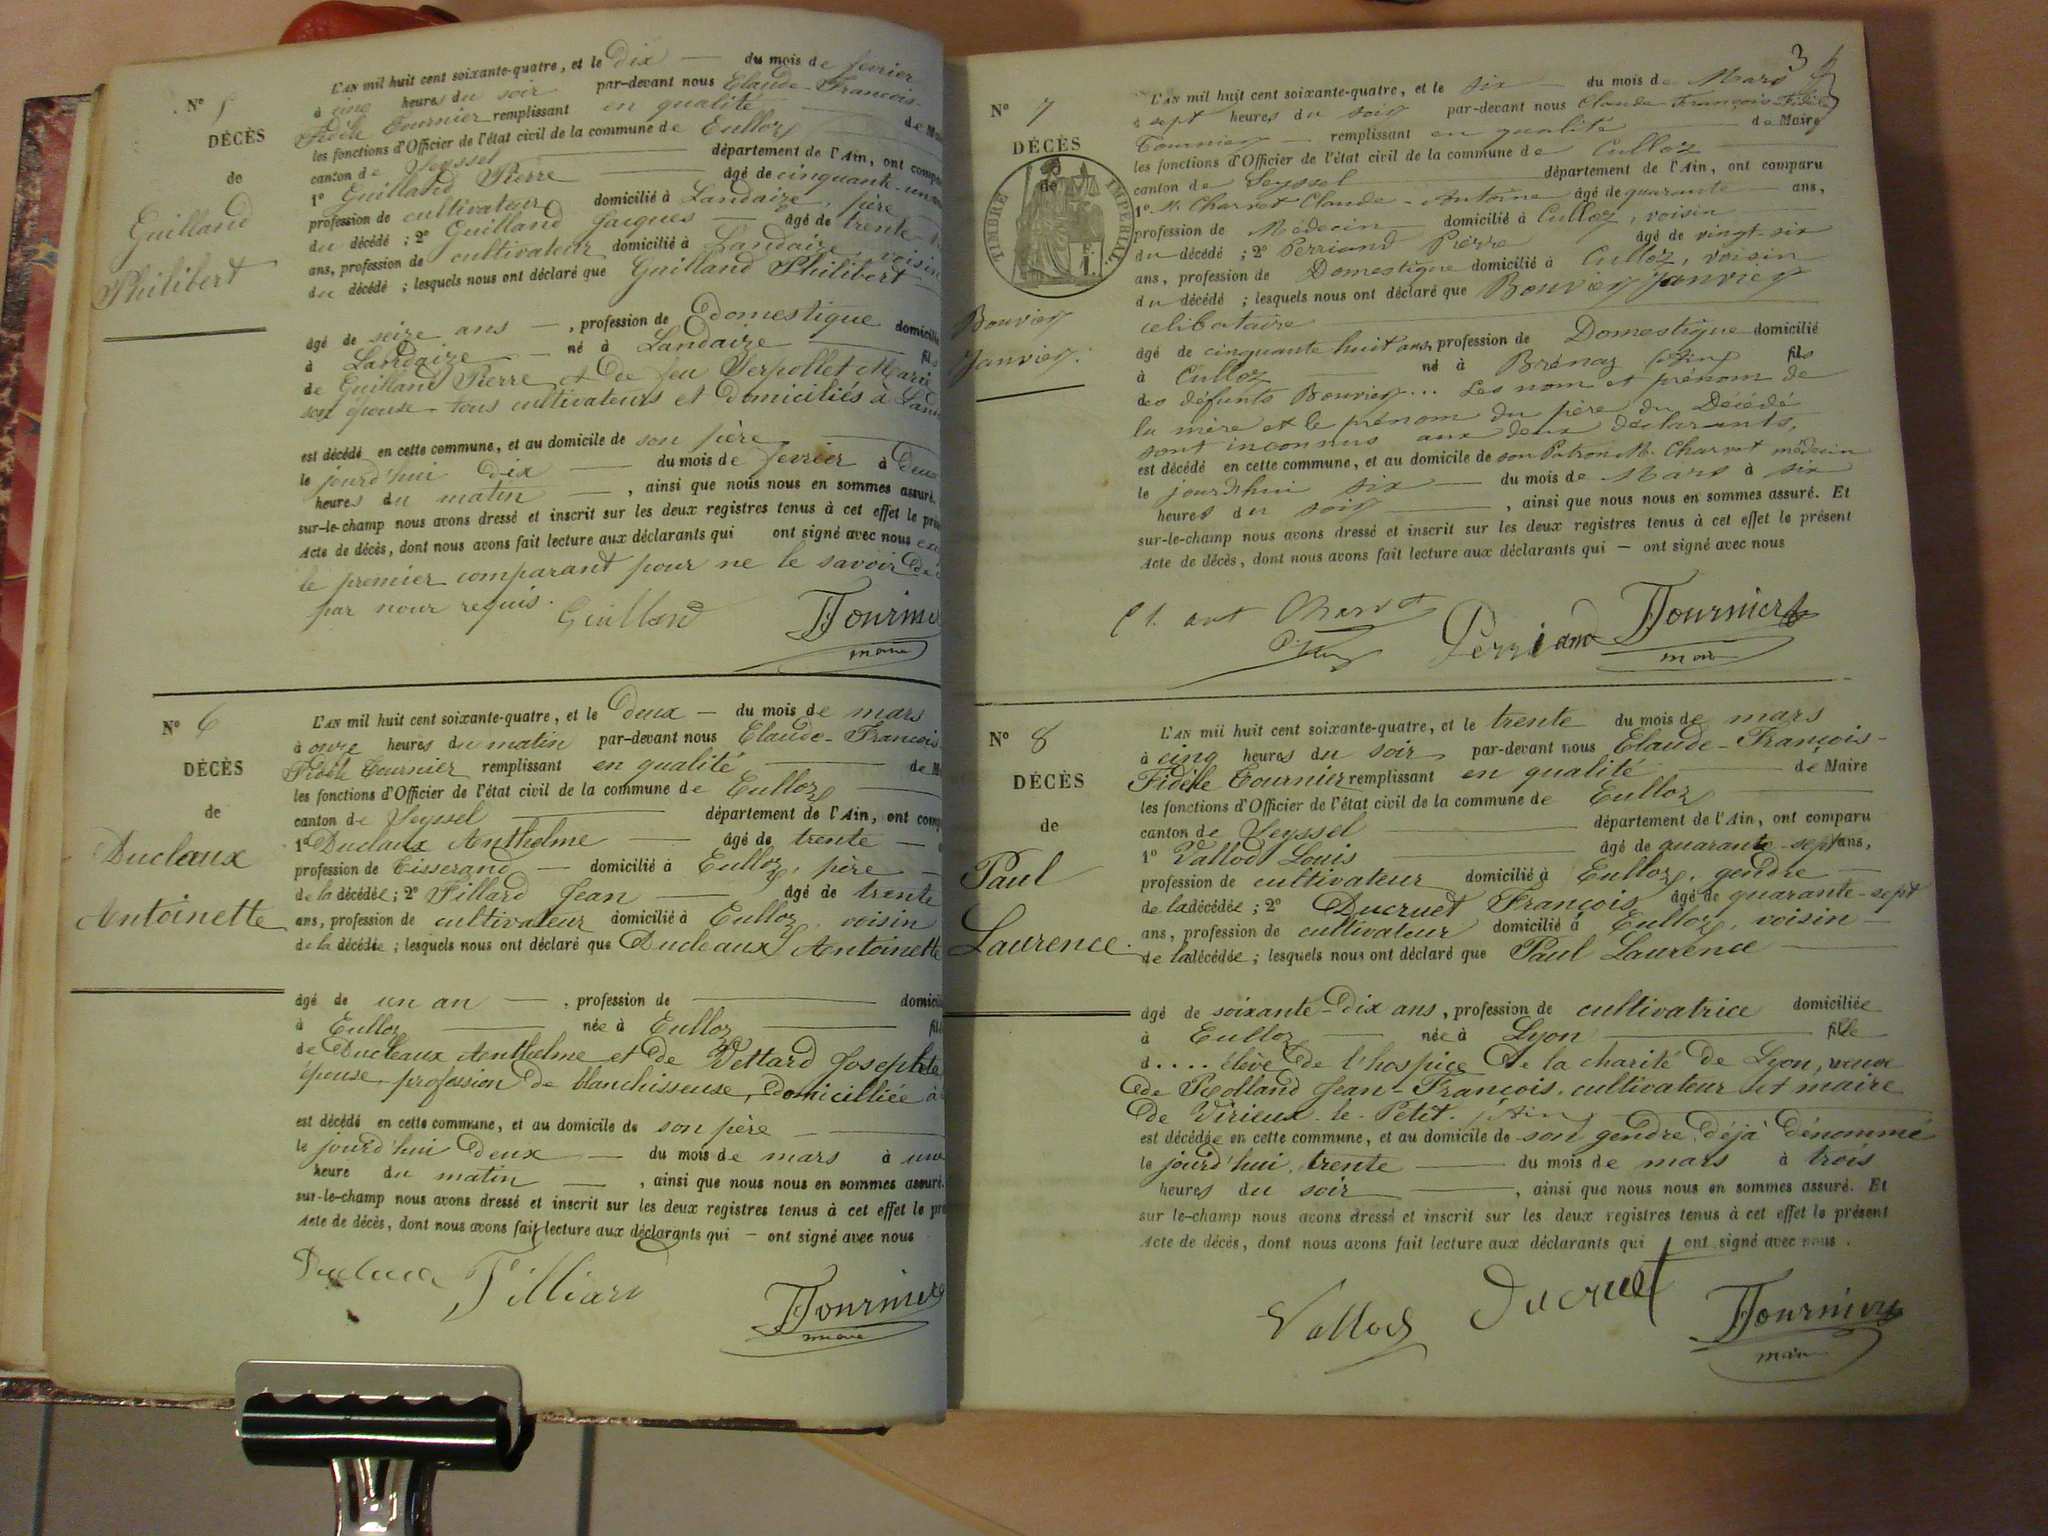 N° 5
DÉCÈS
de
Guilland
Philibert
L'AN mil huit cent soixante-quatre, et le Dix — du mois de fevrier
à cinq heures du soir par-devant nous Claude-François-
Fidèle Tournier remplissant en qualité — de
les fonctions d'Officier de l'état civil de la commune de Culloz
canton de Seyssel — département de l'Ain, ont
1° Guilland Pierre — âgé de cinquante-un
profession de cultivateur domicilié à Landaize, père
du décédé ; 2° Guilland Jacques — âgé de trente
ans, profession de cultivateur domicilié à Landaize, voisin
du décédé ; lesquels nous ont déclaré que Guilland Philibert
âgé de seize ans —, profession de Domestique
à Landaize — né à Landaize — fils
de Guilland Pierre et de feu Serpollet Marie
son épouse tous cultivateurs et domiciliés à
est décédé en cette commune, et au domicile de son père
le jourd'hui dix — du mois de fevrier à Deux
heures du matin —, ainsi que nous nous en sommes assuré.
sur-le-champ nous avons dressé et inscrit sur les deux registres tenus à cet effet le
Acte de décès, dont nous avons fait lecture aux déclarants qui ont signé avec nous
le premier comparant pour ne le savoir de
par nous requis.
Guilland Tournier
maire
N° 6
DÉCÈS
de
Ducleaux
Antoinette
L'AN mil huit cent soixante-quatre, et le deux — du mois de mars
à onze heures du matin par-devant nous Claude-François
Fidèle Tournier remplissant en qualité — de
les fonctions d'Officier de l'état civil de la commune de Culloz
canton de Seyssel — département de l'Ain, ont
1° Duclaux Anthelme — âgé de trente —
profession de Tisserand — domicilié à Culloz, père —
de la décédée ; 2° Tillard Jean — âgé de trente
ans, profession de cultivateur domicilié à Culloz, voisin
de la décédée ; lesquels nous ont déclaré que Ducleaux Antoinette
âgé de un an —, profession de —
à Culloz — née à Culloz —
de Ducleaux Anthelme et de Vettard Josephte
épouse, profession de blanchisseuse, domicilliée à
est décédé en cette commune, et au domicile de son père —
le jourd'hui deux — du mois de mars à une
heure du matin —, ainsi que nous nous en sommes assuré.
sur-le-champ nous avons dressé et inscrit sur les deux registres tenus à cet effet le
Acte de décès, dont nous avons fait lecture aux déclarants qui — ont signé avec nous
Tilliard Tournier
maire
3
N° 7
DÉCÈS
de
TIMBRE IMPÉRIAL
Bouvier
Janvier.
L'AN mil huit cent soixante-quatre, et le six — du mois de Mars
à sept heures du soir par-devant nous Claude François-Fidèle
Tournier — remplissant en qualité — de Maire
les fonctions d'Officier de l'état civil de la commune de Culloz
canton de Seyssel — département de l'Ain, ont comparu
1° M. Charvet Claude-Antoine âgé de quarante ans,
profession de Médecin domicilié à Culloz, voisin
du décédé ; 2° Perriand Pierre âgé de vingt-six
ans, profession de Domestique domicilié à Culloz, voisin
du décédé ; lesquels nous ont déclaré que Bouvier Janvier
célibataire
âgé de cinquante huit ans, profession de Domestique domicilié
à Culloz né à Brénaz (Ain) fils
des défunts Bouvier... Les nom et prénom de
la mère et le prénom du père du Décédé
sont inconnus aux deux déclarants,
est décédé en cette commune, et au domicile de son Patron M. Charvet médecin
le jourd'hui six — du mois de Mars à six
heures du soir —, ainsi que nous nous en sommes assuré. Et
sur-le-champ nous avons dressé et inscrit sur les deux registres tenus à cet effet le présent
Acte de décès, dont nous avons fait lecture aux déclarants qui — ont signé avec nous
Cl. ant Charvet Perriand Tournier
maire
N° 8
DÉCÈS
de
Paul
Laurence.
L'AN mil huit cent soixante-quatre, et le trente du mois de mars
à cinq heures du soir par-devant nous Claude-François-
Fidèle Tournier remplissant en qualité — de Maire
les fonctions d'Officier de l'état civil de la commune de Culloz
canton de Seyssel — département de l'Ain, ont comparu
1° Vallod Louis — âgé de quarante-sept ans,
profession de cultivateur domicilié à Culloz, gendre —
de la décédée ; 2° Ducruet François âgé de quarante-sept
ans, profession de cultivateur domicilié à Culloz, voisin —
de la décédée ; lesquels nous ont déclaré que Paul Laurence —
âgé de soixante-dix ans, profession de cultivatrice domiciliée
à Culloz — née à Lyon — fille
d.... élève de l'hospice de la charité de Lyon, veuve
de Rolland Jean-François, cultivateur et maire
de Virieux-le-Petit. (Ain)
est décédée en cette commune, et au domicile de son gendre déjà dénommé
le jourd'hui, trente — du mois de mars à trois
heures du soir —, ainsi que nous nous en sommes assuré. Et
sur le-champ nous avons dressé et inscrit sur les deux registres tenus à cet effet le présent
Acte de décès, dont nous avons fait lecture aux déclarants qui ont signé avec nous.
Vallod Ducruet Tournier
maire